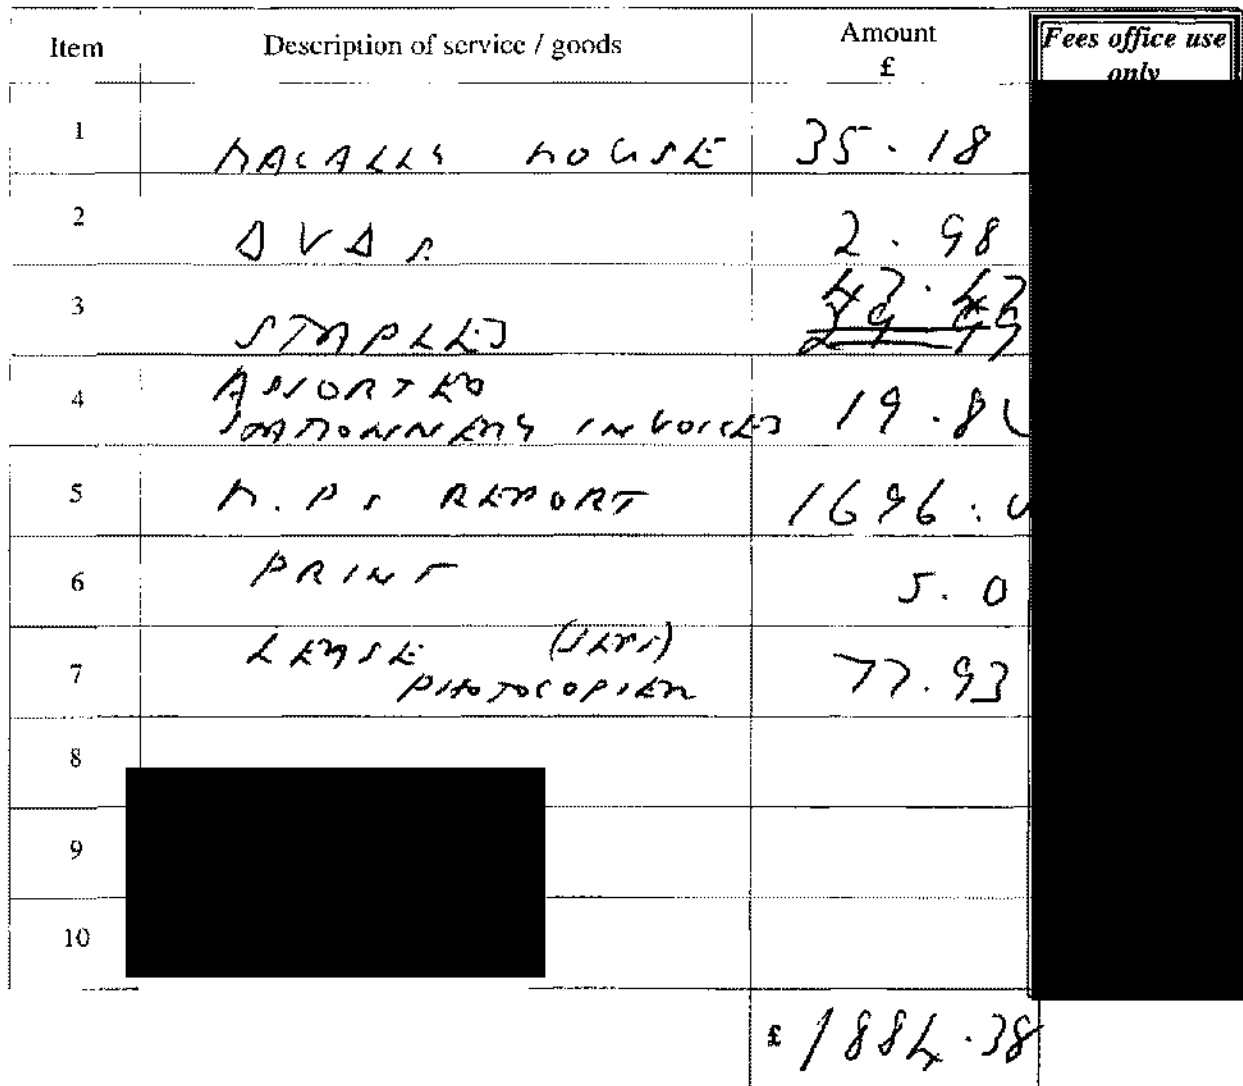 Item Description of service / goods Amount £ Fees office use only
1 MACALLY MOUSE 35.18
2 DVDs 2.98
3 STAPLES 47.47
4 ASSORTED
STATIONNERY INVOICES 19.8
5 M.P s REPORT 1696.
6 PRINT 5.0
7 LEASE (SEPT)
PHOTOCOPIER 77.93
8
9
10
£ 1884.38